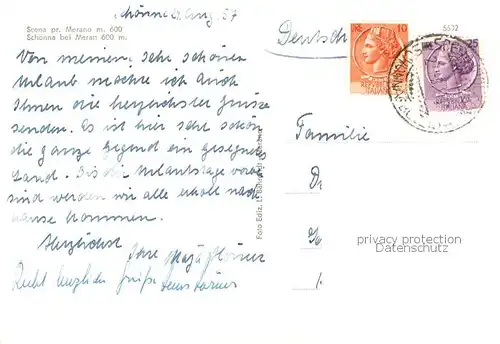 Schönna 21. Aug. 57
Scena pr. Merano m. 600
Schönna bei Meran 600 m.
Von meinem, sehr schönen
Urlaub möchte ich auch
Ihnen die herzlichsten Grüsse
senden. Es ist hier sehr schön
die ganze Gegend ein gesegnetes
Land. Bis die Urlaubstage vorbei
sind werden wir alle erholt nach
hause kommen.
Herzlichst
Ihre
Recht herzliche Grüße
Foto Ediz.
Deutsch
10
25
5532
Familie
privacy protection
Datenschutz